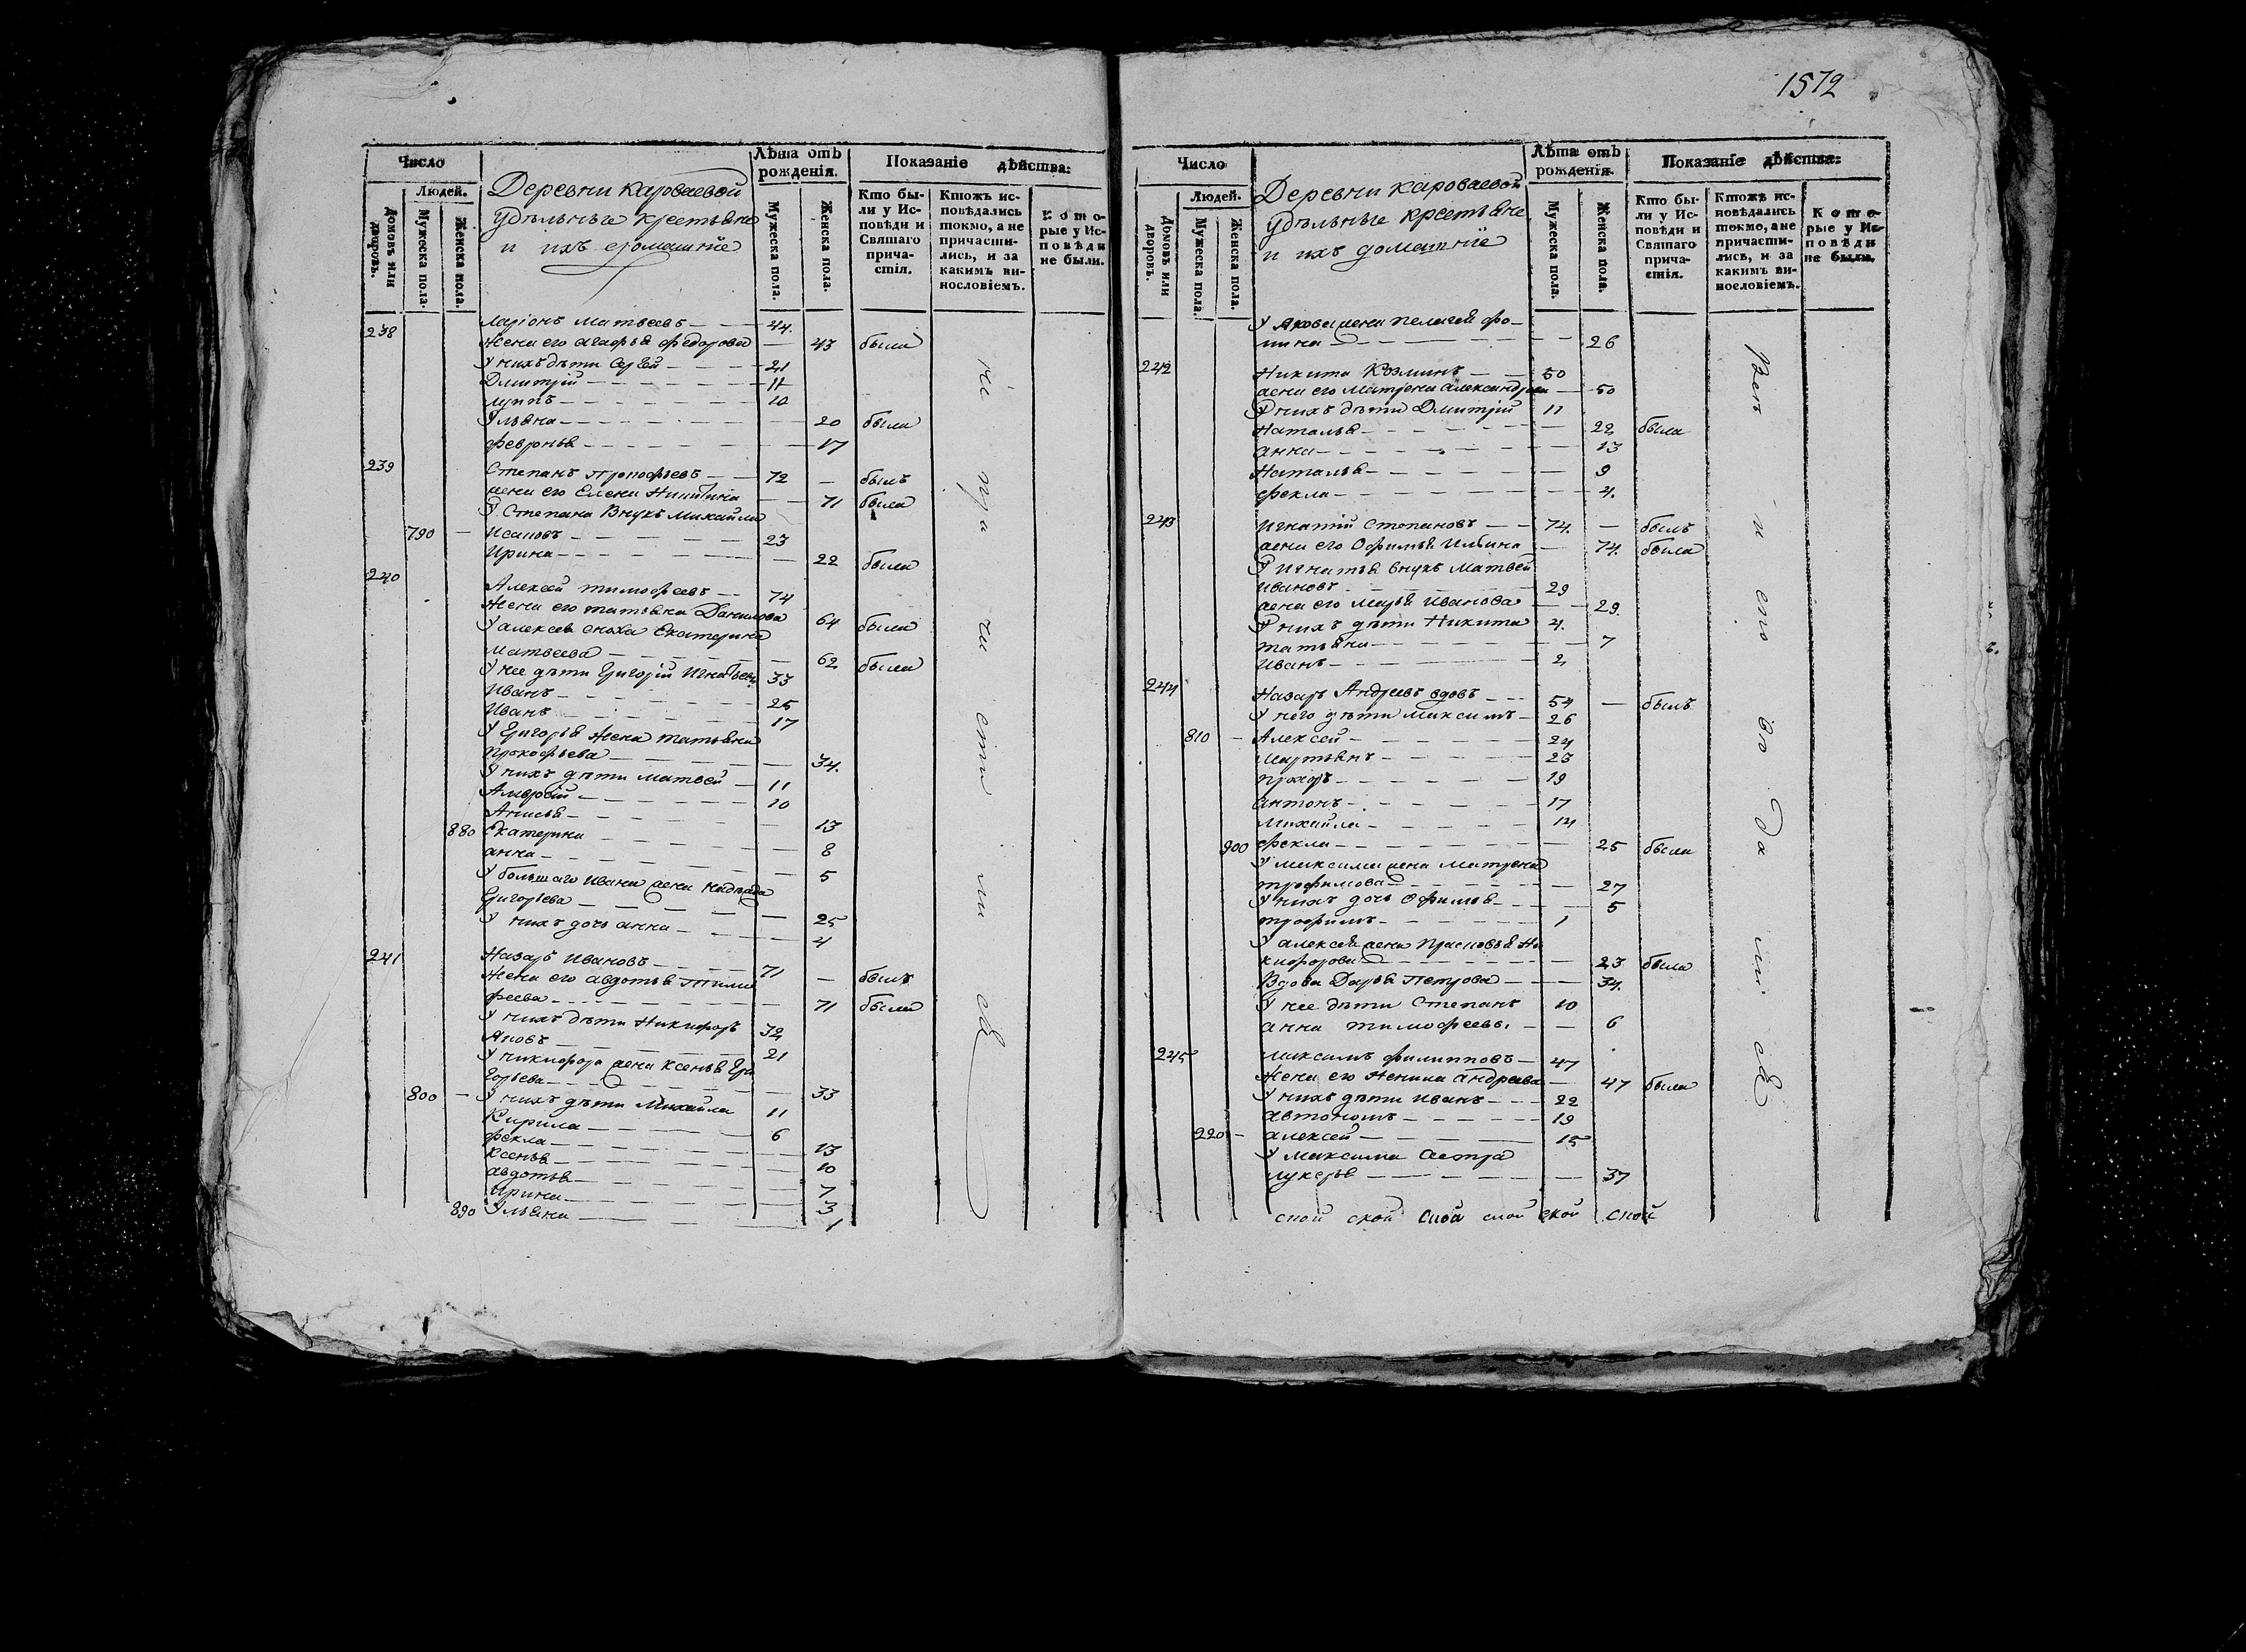 1512
Число
Людей.
Домовъ или дворовъ.
Мужеска пола.
Женска пола.
Деревни Короваевой
Удѣльные крестьяне
и ихъ домашніе
Лѣта отъ рожденія.
Мужеска пола.
Женска пола.
Показаніе дѣйства:
Кто были у Исповѣди и Святаго причастія.
Ктожъ исповѣдались токмо, а не причастились, и за какимъ винословіемъ.
Которые у Исповѣди не были.
238 Ларіонъ Матвеевъ 44.
Жена его Агафья Федорова 43 была
У нихъ дѣти Сергей 21
Дмитрій 11
Луппъ 10
Ульяна 20 была
Февронья 17
239 Степанъ Прокофьевъ 72 — былъ
жена его Елена Никитина 71 была
У Степана Внукъ Михайла
790 — Исаковъ 23
Ирина 22 была
240 Алексей Тимофеевъ 74
Жена его Татьяна Данилова 64 была
У Алексея сноха Екатерина
Матвеева 62 была
У нее дѣти Григорій Игнатьевъ 33
Иванъ 25
Иванъ 17
У Григорья Жена Татьяна
Прокофьева 34.
У нихъ дѣти Матвей 11
10
Анисья 13
880 Екатерина 8
Анна 5
У большаго Ивана жена
Григорьева 25
У нихъ дочь Анна 4
241 Назаръ Ивановъ 71 — былъ
Жена его Авдотья Тимо
феева 71 была
У нихъ дѣти Никифоръ 32
Яковъ 21
У Никифора жена Ксенья Гри
горьева 33
800 — У нихъ дѣти Михайла 11
Кирила 6
Фекла 13
Ксенья 10
Авдотья 7
Ирина 3
890 Ульяна 1
Число
Людей.
Домовъ или дворовъ.
Мужеска пола.
Женска пола.
Деревни Короваевой
Удѣльные крестьяне
и ихъ домашніе
Лѣта отъ рожденія.
Мужеска пола.
Женска пола.
Показаніе дѣйства:
Кто были у Исповѣди и Святаго причастія.
Ктожъ исповѣдались токмо, а не причастились, и за какимъ винословіемъ.
Которые у Исповѣди не были.
У Якова жена Пелагея Фо
мина 26
242 Никита Козминъ 50
жена его Матрена Александрова 50
У нихъ дѣти Дмитрій 11
Наталья 22 была
Анна 13
Наталья 9
Фекла 4.
243 Игнатій Степановъ 74. — былъ
жена его Офимья Ильина 74. была
У Игнатья внукъ Матвей
Ивановъ 29
жена его Марья Иванова 29.
У нихъ дѣти Никита 4.
Татьяна 7
Иванъ 2
244 Назаръ Андреевъ вдовъ 54 — былъ
У него дѣти Максимъ 26
810 — Алексей 24
Мартьянъ 23
Прохоръ 19
Антонъ 17
Михайла 14
900 Фекла 25 была
У Максима жена Матрена
Трофимова 27
У нихъ дочь Офимья 5
Трофимъ 1
У Алексея жена Прасковья Ни
кифорова 23 была
Вдова Дарья Петрова 34.
У нее дѣти Степанъ 10
Анна Тимофеевы 6
245 Максимъ Филипповъ 47
Жена его Ненила Андреева 47 была
У нихъ дѣти Иванъ 22
Автономъ 19
220 — Алексей 15
У Максима Сестра
Лукерья 37